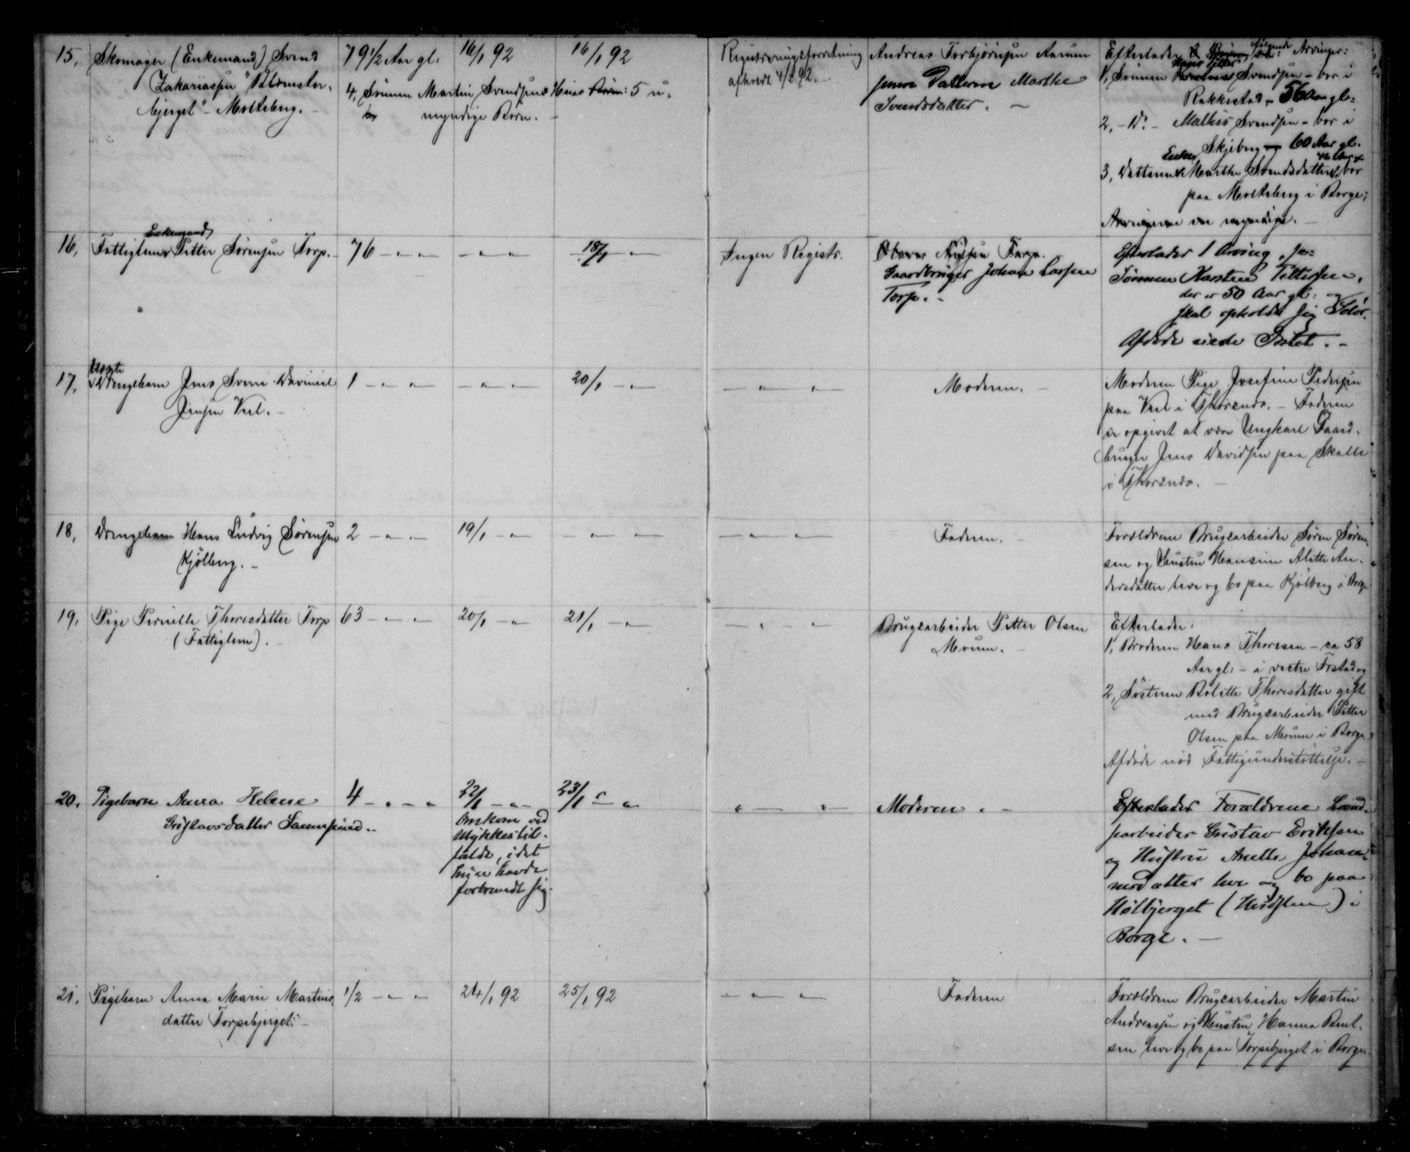 15, Skomager (Enkemand) Svend
Zakariassen "Blomster-
bjerget" - Molteberg. -
79 1/2 Aar gl:
16/1 92
16/1 92
4, Sønnen Martin Svendsens 5 u-
myndige Børn. -
Registreringsforretning
afholdt 92. -
Andreas Torbjørnsen Aarum
Datteren Marthe
Svendsdatter. -
Efterlader følgende Arvinger:
1, Sønnen Svendsen - bor i
Rakkestad - 56 Aar gl:
2, - Do - Mathis Svendsen - bor i
Skjeberg - 60 Aar gl.
3, Datteren Enke Marthe Svendsdatter, bor
paa Molteberg i Borge;
Arvingerne ere myndige. -
16, Fattiglem Enkemand Petter Sørensen Torp. -
76 - " -
- " -
18/1 - " -
Ingen Registr.
Gaardbruger Johan Larsen
Torp. -
Efterlader 1 Arving, se:
Sønnen Karsten Pettersen,
der er 50 Aar gl: og
skal opholde sig
Afdøde eiede Intet. -
17, Uægte Drengebarn Jens Sverre Davinius
Jensen Veel. -
1 - " -
- " -
20/1 - " -
- " -
Moderen. -
Moderen Pige Josefine Pedersen
paa Veel i Thorsnes. - Faderen
er opgivet at være Ungkarl Gaard-
bruger Jens Davidsen paa Skalle
i Thorsnes. -
18, Drengebarn Hans Ludvig Sørensen
Kjølberg. -
2 - " -
19/1 - " -
- " -
- " -
Faderen. -
Forældrene Brugsarbeider Søren Søren-
sen og Hustru Hansine Alette An-
dersdatter leve og bo paa Kjølberg i Borge
19, Pige Pernille Thoresdatter Torp
(Fattiglem). -
63 - " -
20/1 - " -
21/1 - " -
- " -
Brugsarbeider Petter Olsen
Moum. -
Efterlader:
1, Broderen Hans Thoresen - ca 58
Aar gl: - i vestre Frstad og
2, Søsteren Bolette Thoresdatter gift
med Brugsarbeider Petter
Olsen paa Moum i Borge
Afdøde nød Fattigunderstøttelse. -
20. Pigebarn Anna Helene
Gustavsdatter
4 - " -
22/1 - " -
Omkom ved
Ulykkestil-
fælde, idet
hun havde
forbrændt sig.
23/1 - " -
" - "
Moderen. -
Efterlader Forældrene
Gustav Eriksen
og Hustru Anette Johan-
nesdatter leve og bo paa
Hølbjerget i
Borge. -
21. Pigebarn Anna Marie Martins
datter Torpebjerget: -
1/2 - " -
24/1 92
25/1 92
- " -
Faderen
Forældrene Brugsarbeider Martin
Andreassen og Hustru Hanna Bent-
sen leve og bo paa Torpebjerget i Borge